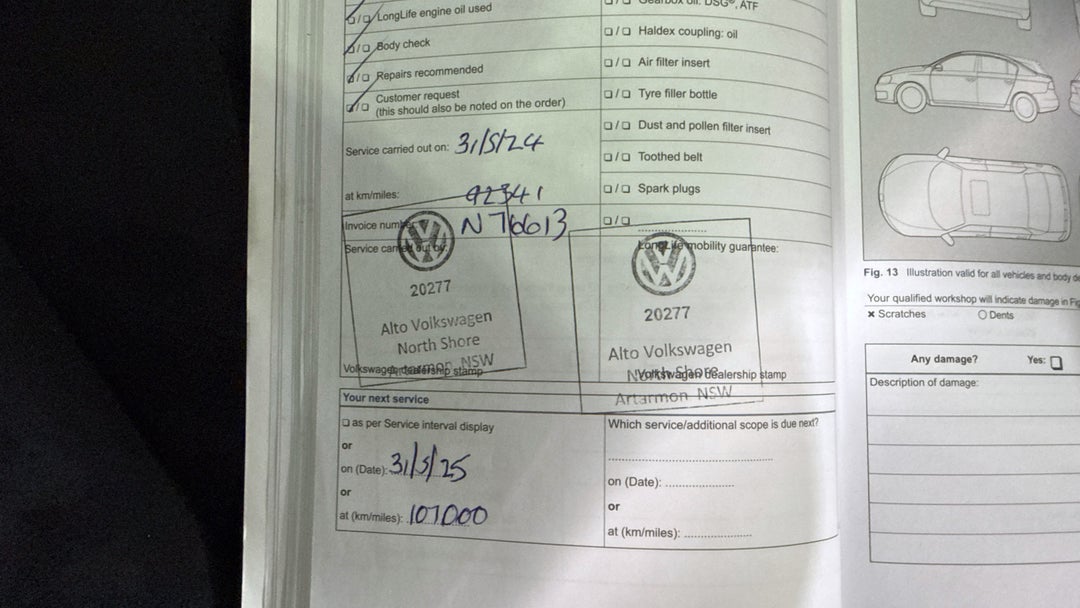 LongLife engine oil used
Body check
Repairs recommended
Customer request
(this should also be noted on the order)
Service carried out on: 31/5/24
at km/miles: 92341
Invoice number: N76613
Service carried out by:
20277
Alto Volkswagen
North Shore
Artarmon NSW
Volkswagen dealership stamp
Gearbox oil: DSG®, ATF
Haldex coupling: oil
Air filter insert
Tyre filler bottle
Dust and pollen filter insert
Toothed belt
Spark plugs
LongLife mobility guarantee:
20277
Alto Volkswagen
North Shore
Volkswagen dealership stamp
Artarmon NSW
Your next service
as per Service interval display
or
on (Date): 31/5/25
or
at (km/miles): 107000
Which service/additional scope is due next?
on (Date):
or
at (km/miles):
Fig. 13 Illustration valid for all vehicles and body
Your qualified workshop will indicate damage in
Scratches
Dents
Any damage? Yes:
Description of damage: